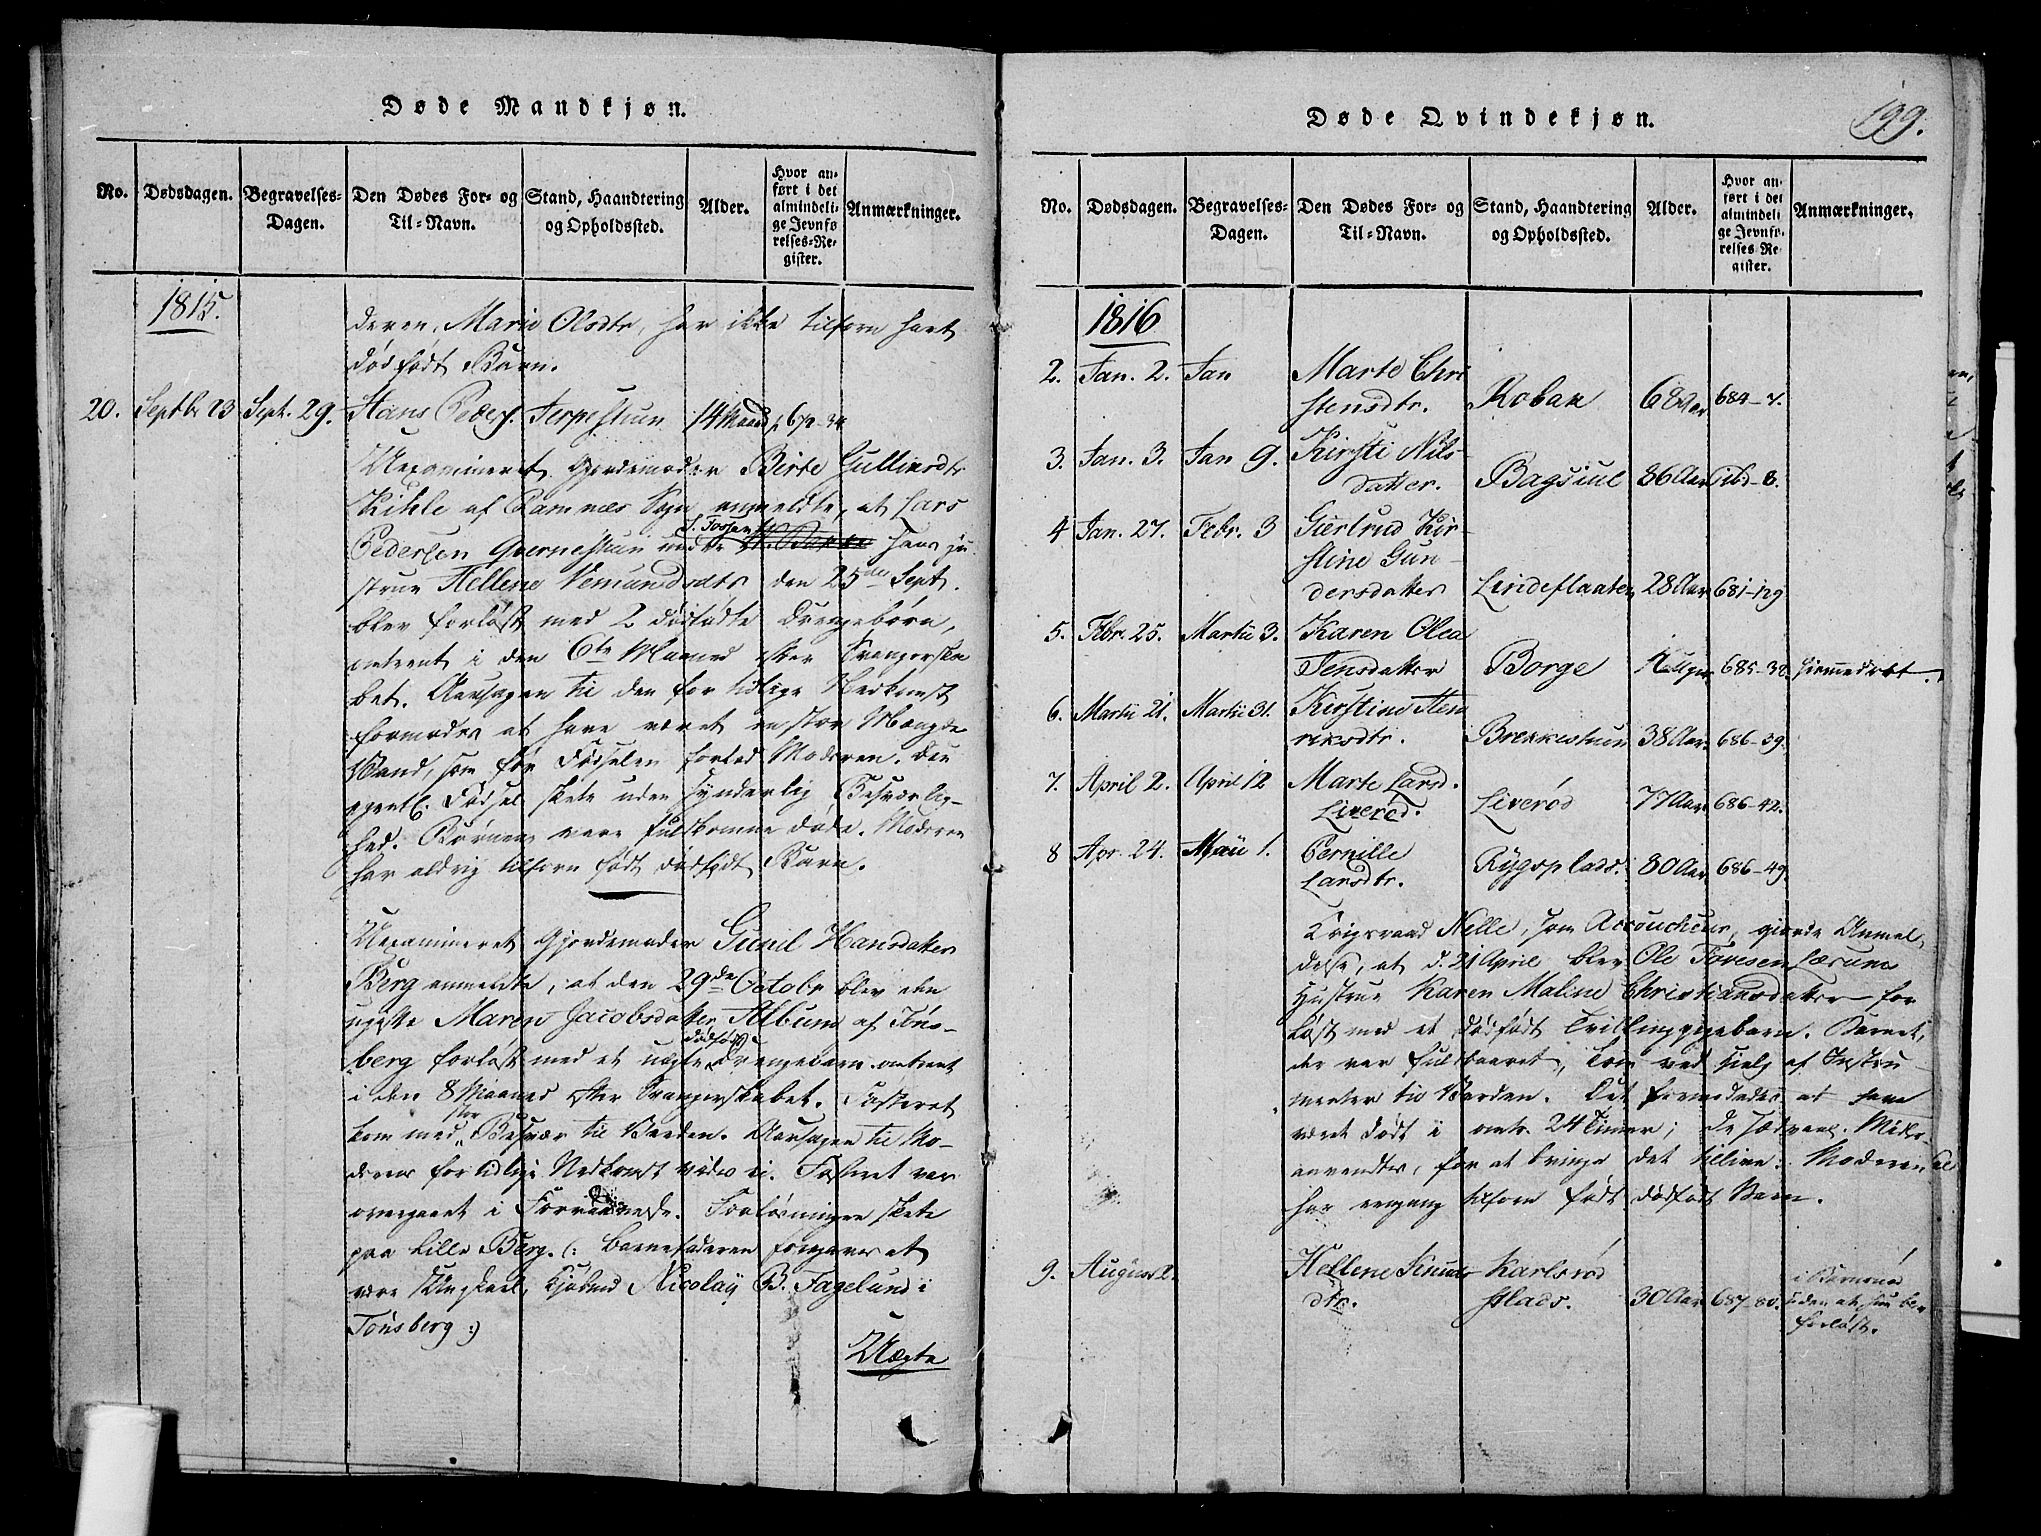 Døde Mandkjøn.
No. Dødsdagen. Begravelses-Dagen. Den Dødes For- og Til-Navn. Stand, Haandtering og Opholdssted. Alder. Hvor anført i det almindelige Jevnførelses-Register. Anmærkninger.
1815.
deren, Marie Olsdtr, har ikke tilforn havt
dødfødt Barn.
20. Septbr 23 Sept. 29. Hans Peders. Terpestuen 14 Maand. 672-34
Uexamineret Gjordemoder Birte Gullixsdtr
Kihle af Ramnæs Sogn anmeldte, at Lars
Pedersen Gvernestuen under hans hu
strue Hellene Vemundsdtr den 25de Sept.
blev forløst med 2 dødfødte Drengebørn,
omtrent i den 6te Maaned efter Svangerska
bet. Aarsagen til den for tidlige Nedkomst
formodes at have været en stor Mængde
Vand, som før Fødselen forlod Moderen. Den
egentl. Fødsel skete uden synderlig Besværlig-
hed. Børnene vare fuldkomne døde. Moderen
har aldrig tilforn født dødfødt Barn.
Uexamineret Gjordemoder Gunil Hansdatter
Berg anmeldte, at den 29de Octobr blev den
ugifte Maren Jacobsdatter Album af Tøns-
berg forløst med et uægte dødfødt Drengebarn omtrent
i den 8 Maaned efter Svangerskabet. Fosteret
kom med stor Besvær til Verden. Aarsagen til Mo-
derens for tidlige Nedkomst vides ei. Fosteret var
overgaaet i Forraadnelse. Forløsningen skete
paa Lille Berg. (: Barnefaderen foregaves at
være Ungkarl, Kjøbmd Nicolaÿ B. Fagelund i
Tønsberg :)
Uægte
Døde Qvindekjøn.
199.
No. Dødsdagen. Begravelses-Dagen. Den Dødes For- og Til-Navn. Stand, Haandtering og Opholdssted. Alder. Hvor anført i det almindelige Jevnførelses-Register. Anmærkninger.
1816
2. Jan. 2. Jan Marte Chri
stensdtr. Roban 68 Aar 684-7.
3. Jan. 3. Jan 9. Kirsti Nils
datter. Bagsiul 86 Aar ibid-8.
4 Jan. 27. Febr. 3 Giertrud Kir
stine Gun-
dersdatter Lindeflaaten 28 Aar 681-129
5. Febr. 25. Martii 3. Karen Olea
Jensdatter Borge 685-38. hiemmedøbt.
6. Martii 21. Martii 31. Kirstine Hen
riksdtr. Brekkestuen 38 Aar 686-39.
7. April 2. April 12 Marte Larsd.
Liverød. Liverød 77 Aar 686-42.
8 Apr. 24. Maii 1. Pernille
Larsdtr. Rygsplads. 80 Aar 686-49.
Krigsraad Nelle, som Accoucheur, giorde Anmel
delse, at d. 21 April blev Ole Toresen
Hustrue Karen Maline Christiansdatter for
løst med et dødfødt Tvillingpigebarn. Barnet,
der var fuldbaaret, kom ved Hielp af Instru
menter til Verden. Det formodedes at have
været dødt i omtr. 24 Timer; de sædvanl. Midler
anvendtes, for at bringe det tillive. Moderen
har eengang tilforn født dødfødt Barn.
9. August 2. Hellene Knuds
dtr. Karlsrød
Plads. 30 Aar 687-80. i Barnsnød
uden at hun blev
forløst.